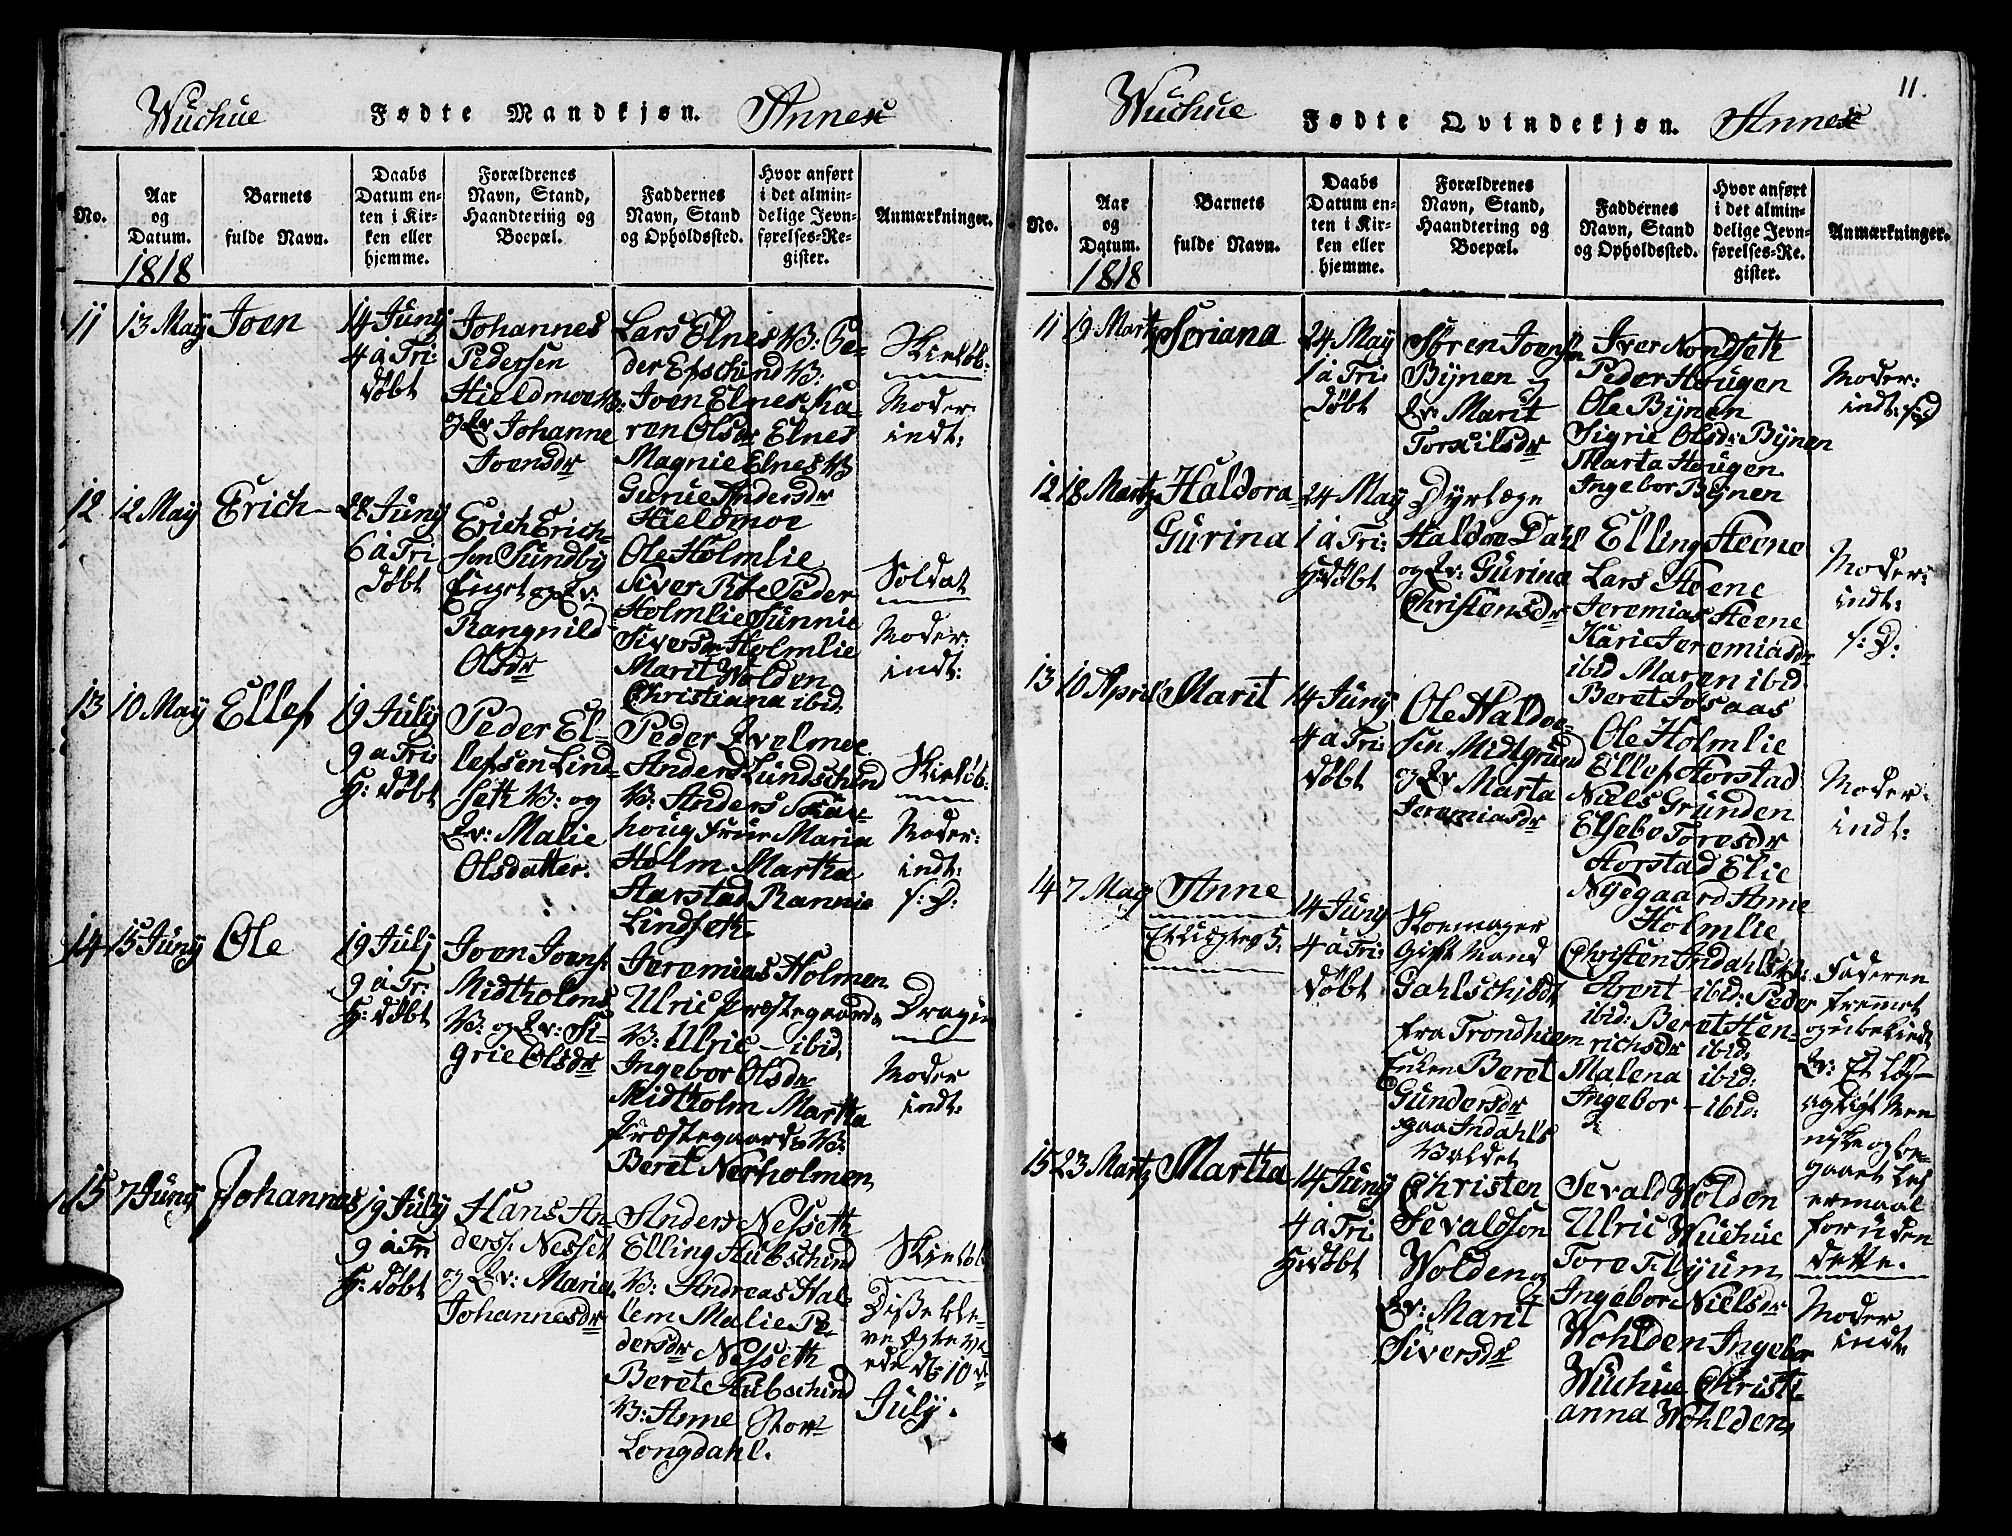 Wuchue Fødte Mandkjøn. Annex
No.
Aar
og
Datum.
1818
Barnets
fulde Navn.
Daabs
Datum en-
ten i Kir-
ken eller
hjemme.
Forældrenes
Navn, Stand,
Haandtering og
Boepæl.
Faddernes
Navn, Stand
og Opholdssted.
Hvor anført
i det almin-
delige Jevn-
førelses-Re-
gister.
Anmærkninger.
11 13 May Joen
14 Juny
4 à Tri:
døbt
Johannes
Pedersen
Hieldmoe B:
og Qv Johanne
Joensdr
Lars Elnes B: Pe-
der Epschind B:
Joen Elnes Ka-
ren Olsdr Elnes
Magnie Elnes B
Gurue Andersdr
Hieldmoe
Skieløb:
Moder
indt:
12 12 May Erich
28 Juny
6 à Tri
døbt
Erich Erich-
sen Sundby
Enget og Qv:
Rangnild
Olsdr
Ole Holmlie
Siver Peder
Holmlie Sunnie
Siversdr Holmlie
Marit Wolden
Christiana ibid.
Soldat
Moder:
indt:
13 10 May Ellef
19 July
9 a Tri:
H: døbt
Peder El-
lefsen Lind-
seth B: og
Qv: Malie
Olsdatter.
Peder Qvelmoe
Anders Lundschind
B: Anders
houg frue Maria
Holm Martha
Harstad Rannie
Lindseth
Skieløb:
Moder:
indt:
f: D:
14 15 Juny Ole
19 July
9 à Tr:
H: døbt
Joen Joens:
Midtholms
B: og Qv: Si-
grie Olsdr
Jeremias Holmen
Ulric Præstegaarden
B: Ulric - ibid.
Ingebor Olsdr
Midtholm Martha
Præstegaarden B:
Beret Nerholmen
Dragun
Moder
indt:
15 7 Juny Johannes
19 July
9 à Tri
H: døbt
Hans An-
ders: Nesset
og Qv: Maria
Johannesdr
Anders Nesseth
Elling Hubschind
B: Andreas Hal-
lem Malie Pe-
dersdr Nesseth
Beret Hubschind
B: Anne Stor
Longdahl.
Skieløb
Disse ble-
ve ægtevi-
ede d: 10de
July.
11.
Wuchue Fødte Qvindekjøn. Annex
No.
Aar
og
Datum.
1818
Barnets
fulde Navn.
Daabs
Datum en-
ten i Kir-
ken eller
hjemme.
Forældrenes
Navn, Stand,
Haandtering og
Boepæl.
Faddernes
Navn, Stand
og Opholdssted.
Hvor anført
i det almin-
delige Jevn-
førelses-Re-
gister.
Anmærkninger.
11 19 Martz Soriana
24 May
1 à Tri:
døbt
Søren Joensen
Bynen
Qv Marit
Torkilsdr
Iver Nondseth
Peder Hougen
Ole Bynen
Sigrie Olsdr: Bynen
Marta Hougen
Ingebor Bynen
Moder:
indt: f: D
12 18 Martz Haldora
Gurina
24 May
1 à Tri:
H: døbt
Dyrlæge
Haldoe Dahl
og Qv: Gurina
Christensdr
Elling Steene
Lars Steene
Jeremias Steene
Karie Jeremiasdr
ibid Maren ibid
Beret Josaas
Moder:
indt:
f: D:
13 10 April Marit
14 Juny
4 à Tri:
døbt
Ole Haldoe-
sen Midtgrund
og Qv Marta
Jeremiasdr
Ole Holmlie
Ellef Storstad
Niels Grunden
Elsebe Toresdr
Storstad Elie
Nygegaard Anne
Holmlie
Moder:
indt:
14 7 May Anne
14 Juny
4 à Tri:
døbt
Skoemager
Gift Mand
Gahlschiødt
fra Trondhiem
Enken Beret
Gundersdr
paa Indahls
Valdet
Christen Indahl B:
Arent - ibid: Peder
ibid: Beret Hen-
richsdr ibid:
Malena ibid:
Ingebor - ibid:
Faderen
fremmet
og ubekiendt
Qv: Et Løs-
agtigt Men
neske og be-
gaaet Lei
ermaal
foruden
dette.
15 23 Martz Martha
14 Juny
4 à Tri
H: døbt
Christen
Sevaldsøn
Wolden og
Qv: Marit
Siversdr
Sevald Wolden
Ulric Wuchue
Tore Flyum
Ingebor Nielsdr
Wohlden Ingebor
Wuchue Christi-
anna Wohlden
Moder
indt: